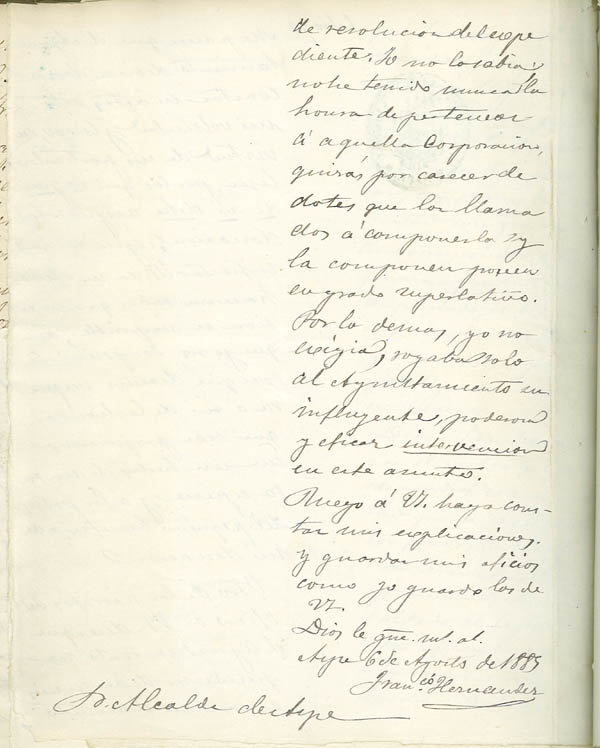 de resolucion del espe
diente. Yo no lo sabia:
no he tenido nunca la
honra de pertenecer
á aquella Corporacion,
quizás por carecer de
dotes que los llama
dos á componerla y
la componen poseen
en grado superlativo.
Por lo demas, yo no
exigia, rogaba solo
al Ayuntamiento su
influyente, poderosa
y eficaz intervencion
en este asunto.
Ruego á V. haga cons-
tar mis explicaciones.
y guardar mis oficios
como yo guardo los de
V.
Dios le gue. m. a.
Aspe 6 de Agosto de 1885
Fran.co Hernandez
Sr. Alcalde de Aspe